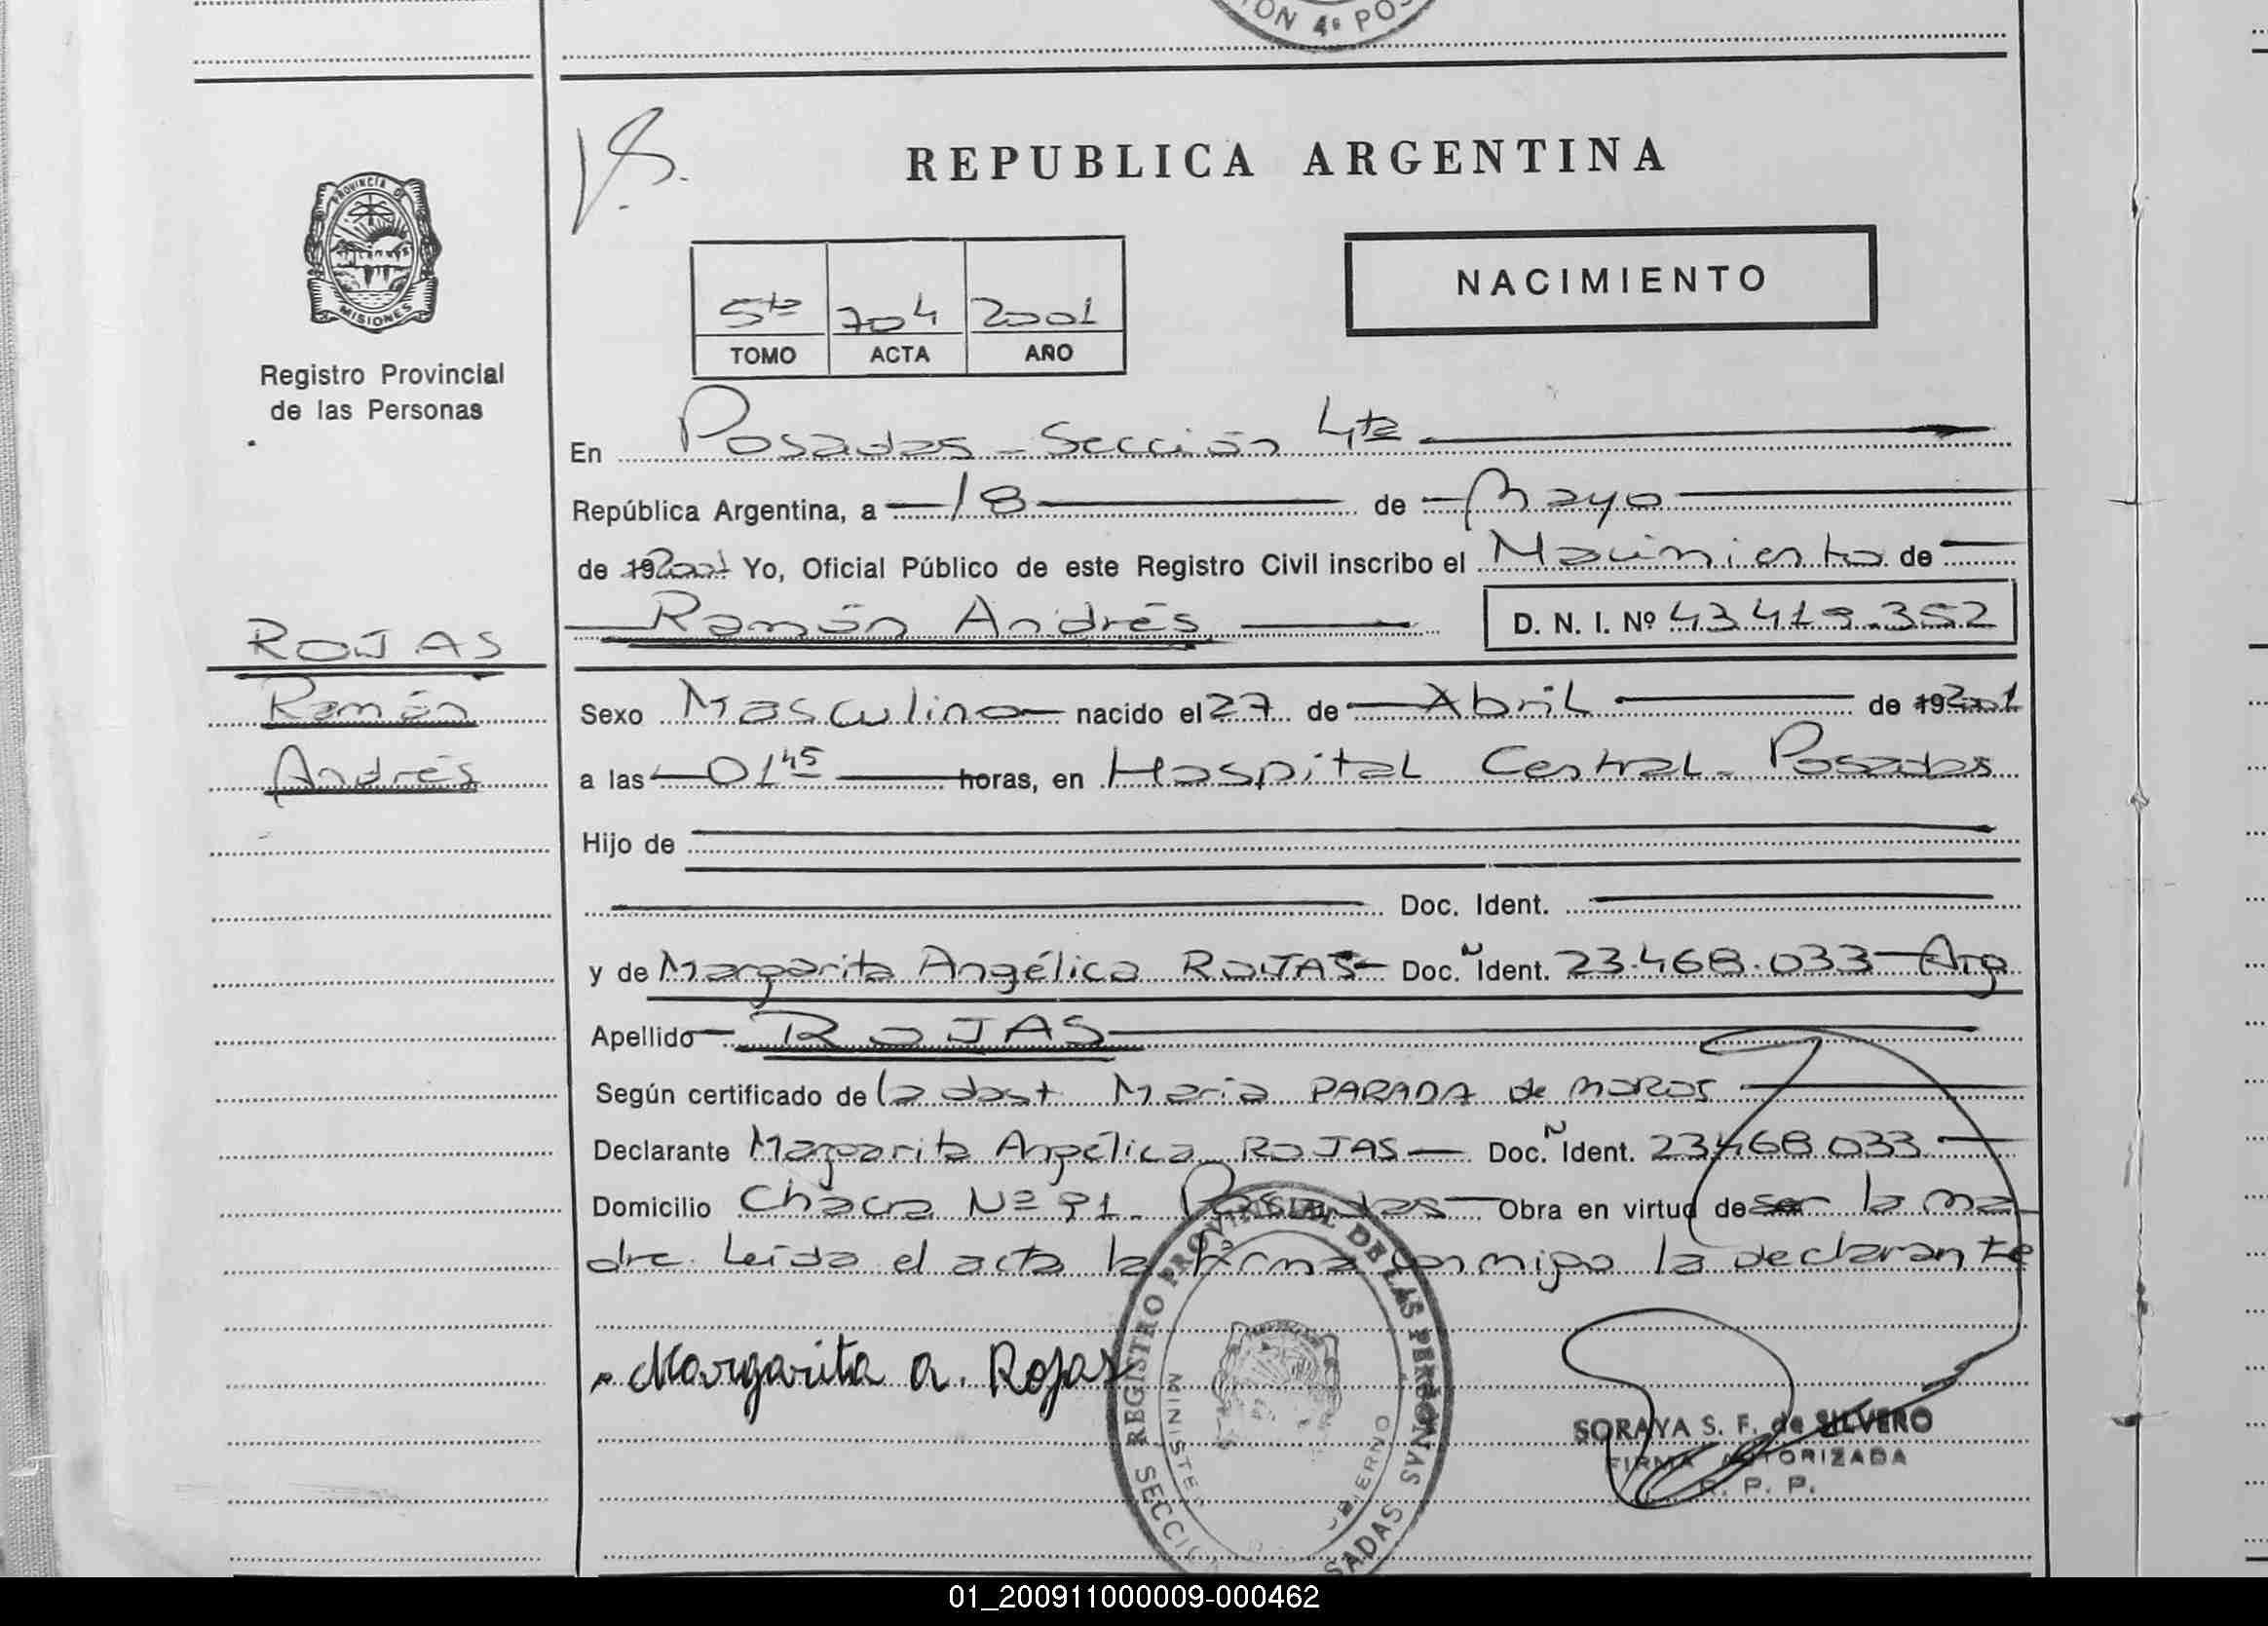 ON 4º POS
REPUBLICA ARGENTINA
PROVINCIA DE
MISIONES
NACIMIENTO
5to 704 2001
TOMO ACTA AÑO
Registro Provincial
de las Personas
En Posadas - Sección 4ta
República Argentina, a 18 de Mayo
de 192001 Yo, Oficial Público de este Registro Civil inscribo el Nacimiento de
Ramón Andrés D. N. I. Nº 43.419.352
ROJAS
Ramón
Andrés
Sexo Masculino nacido el 27 de Abril de 192001
a las 01 45 horas, en Hospital Central - Posadas
Hijo de
Doc. Ident.
y de Margarita Angélica ROJAS - Doc. Ident. 23.468.033 - Arg
Apellido ROJAS
Según certificado de la obst María PARADA de MOROS
Declarante Margarita Angélica ROJAS - Doc. Ident. 23468033
Domicilio Chacra Nº 91 - Posadas Obra en virtud de ser la ma
dre. Leída el acta la firma conmigo la declarante
Margarita A. Rojas
REGISTRO PROVINCIAL DE LAS PERSONAS
SORAYA S. F. de SILVERO
FIRMA AUTORIZADA
R. P. P.
01_200911000009-000462